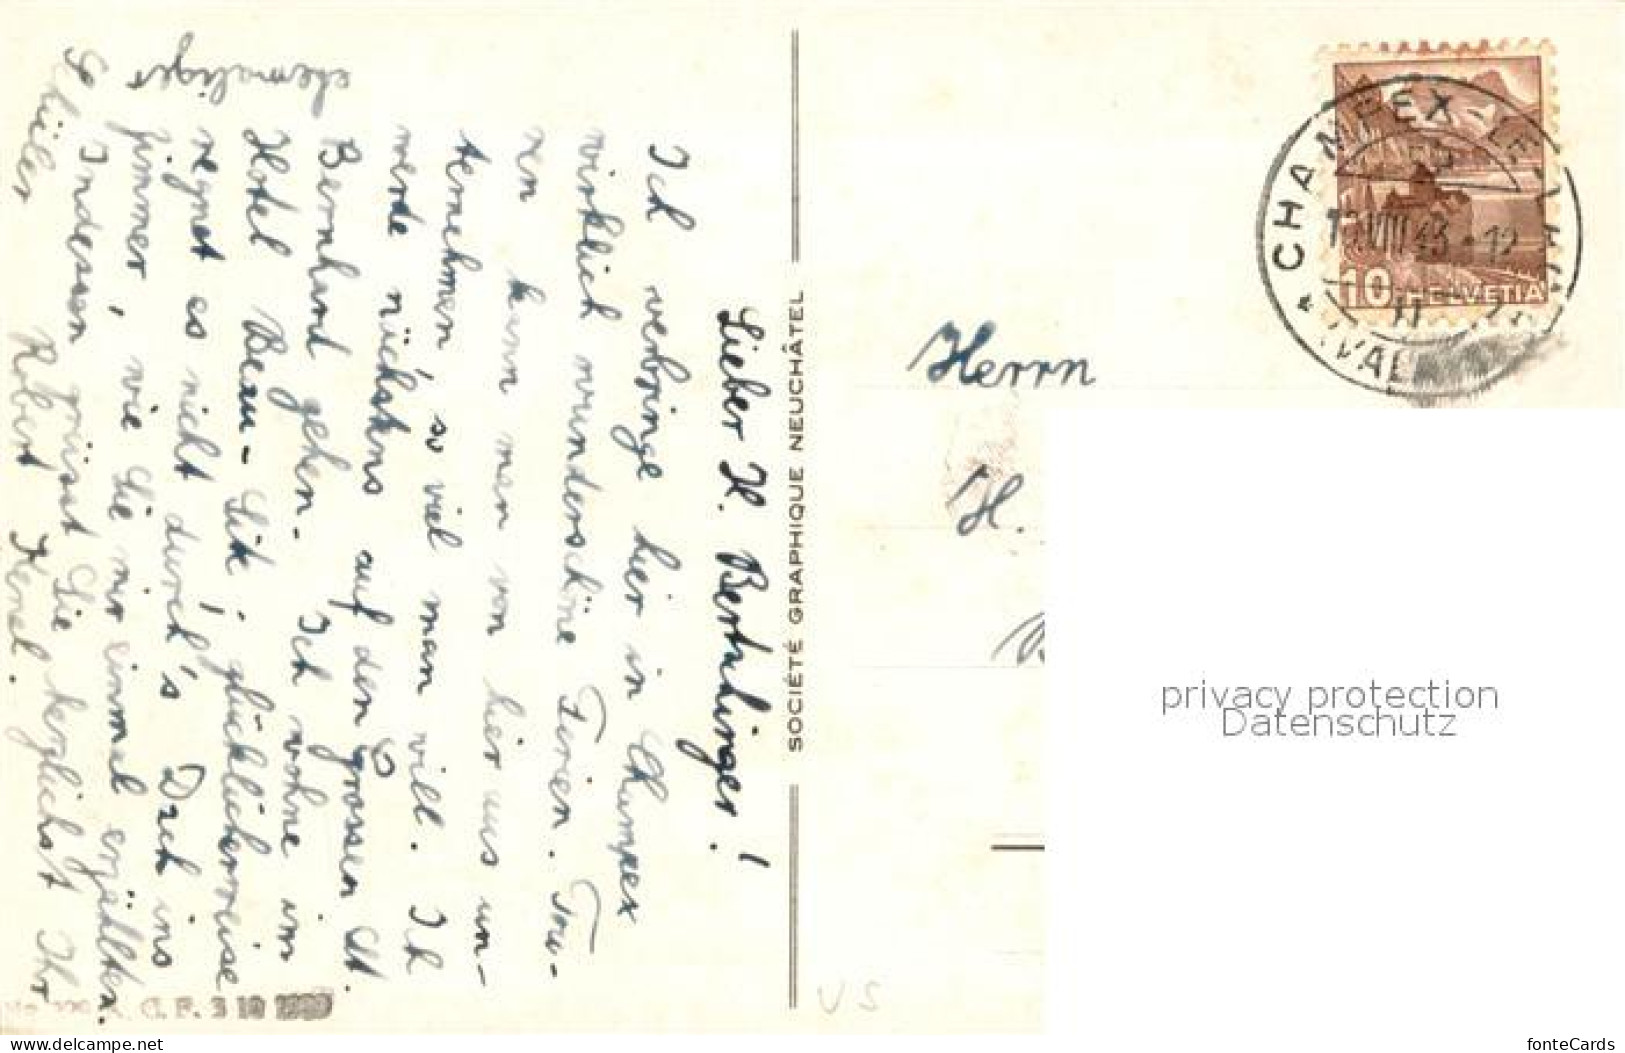 Lieber H. Berhlinger!
Ich verbringe hier in Champex
wirklich wunderschöne Ferien. Tou-
ren kann man von hier aus un-
ternehmen, so viel man will. Ich
werde nächstens auf den grossen St.
Bernhard gehen. Ich wohne im
Hotel Beau-Site; glücklicherweise
regnet es nicht durch's Dach ins
Zimmer, wie Sie mir einmal erzählten.
Indessen grüsst Sie herzlichst Ihr
ehemaliger
Schüler Robert
SOCIÉTÉ GRAPHIQUE NEUCHÂTEL
CHAMPEX-LE-LAC
VIII 43-12
10 HELVETIA
(VAL
Herrn
H.
privacy protection
Datenschutz
V S
C. F. 3 10
www.delcampe.net
fonteCards